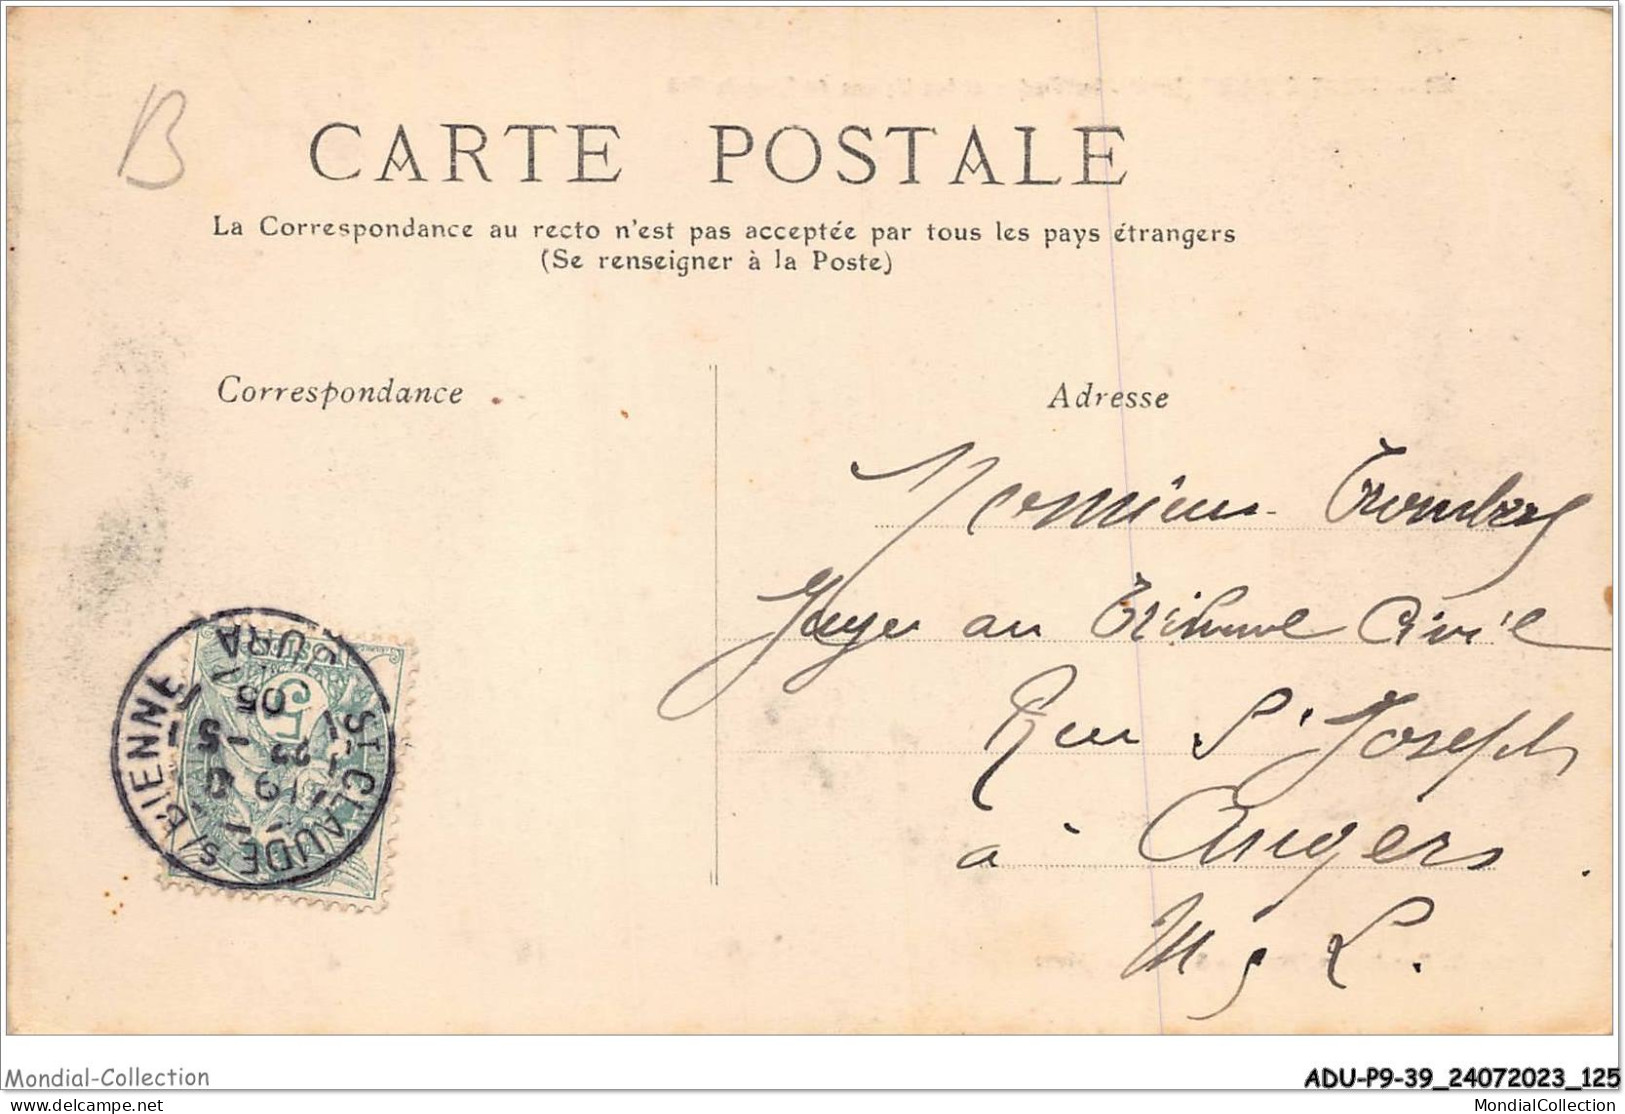 B
CARTE POSTALE
La Correspondance au recto n'est pas acceptée par tous les pays étrangers
(Se renseigner à la Poste)
Correspondance
Adresse
Monsieur
Juge au Tribunal Civil
Rue St Joseph
à Angers
M & L.
ST CLAUDE S/ BIENNE
JURA
23
05
5
Mondial-Collection
ADU-P9-39_24072023_125
www.delcampe.net
MondialCollection